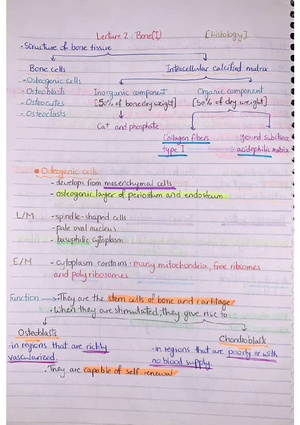 Lecture 2 : Bone(I) [Histology]
• Structure of bone tissue
Bone cells
Intracellular calcified matrix
- Osteogenic cells
- Osteoblasts
- Osteocytes
- Osteoclasts
Inorganic component
[50% of bone dry weight]
Ca+ and phosphate
Organic component
[50% of dry weight]
Collagen fibers
type I
ground substance
acidophilic matrix
Osteogenic cells
- develops from mesenchymal cells
- osteogenic layer of periosteum and endosteum
L/M
- spindle-shaped cells
- pale oval nucleus
- basophilic cytoplasm
E/M
- cytoplasm contains: many mitochondria, free ribosomes
and polyribosomes
Function → • They are the stem cells of bone and cartilage
• When they are stimulated; they give rise to
Osteoblasts
- in regions that are richly
vascularized
Chondroblasts
- in regions that are poorly or with
no blood supply
• They are capable of self renewal